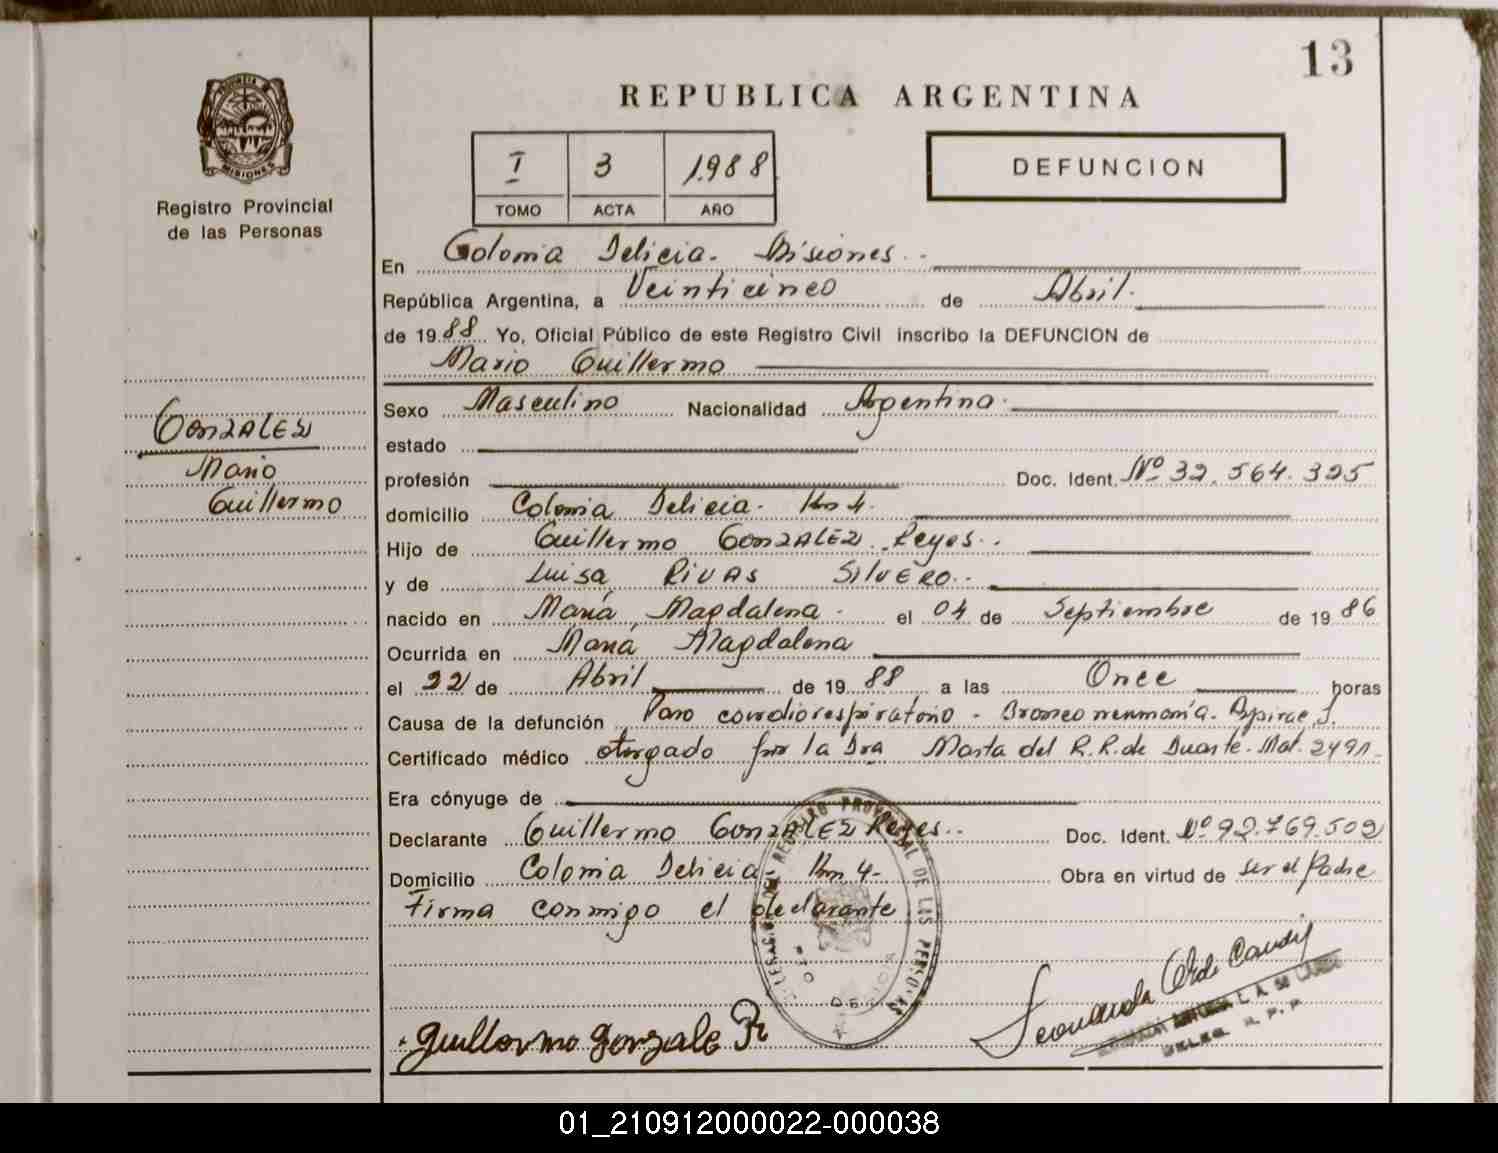 13
REPUBLICA ARGENTINA
PROVINCIA
MISIONES
Registro Provincial
de las Personas
I 3 1988
TOMO ACTA AÑO
DEFUNCION
En Colonia Delicia. Misiones
República Argentina, a Veinticinco de Abril.
de 1988 Yo, Oficial Público de este Registro Civil inscribo la DEFUNCION de
Mario Guillermo
GONZALEZ
Mario
Guillermo
Sexo Masculino Nacionalidad Argentina
estado
profesión Doc. Ident. Nº 32.564.325
domicilio Colonia Delicia. Km 4.
Hijo de Guillermo GONZALEZ Reyes.
y de Luisa RIVAS SILVERO.
nacido en María Magdalena. el 04 de Septiembre de 1986
Ocurrida en María Magdalena
el 22 de Abril de 1988 a las Once horas
Causa de la defunción Paro cardiorespiratorio - Bronconeumonía.
Certificado médico otorgado por la Dra Marta del R.R. de Duarte. Mat. 2491-
Era cónyuge de
Declarante Guillermo GONZALEZ Reyes.. Doc. Ident. Nº 92.769.502
Domicilio Colonia Delicia Km 4- Obra en virtud de ser el Padre
Firma conmigo el declarante
REGISTRO PROVINCIAL DE LAS PERSONAS
DELICIA
Guillermo Gonzale R
01_210912000022-000038